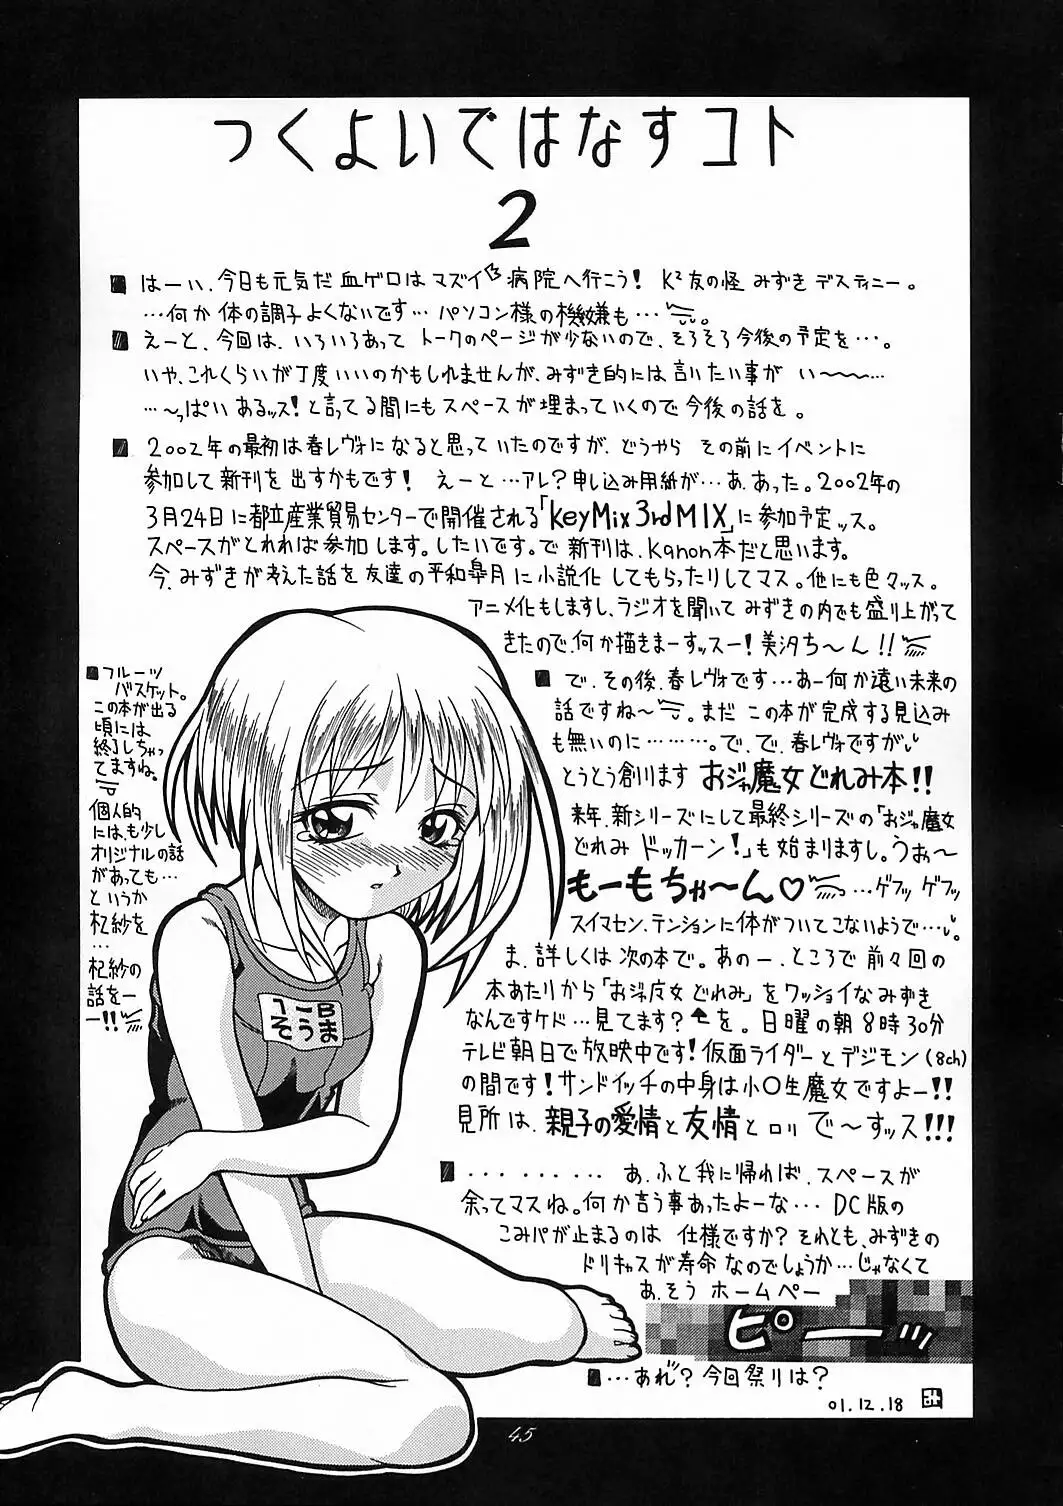 つくよいではなすコト
2
■はーい、今日も元気だ血ゲロはマズイ 病院へ行こう! K²友の怪 みずき デスティニー。
…何か体の調子よくないです… パソコン様の機嫌も…。
■えーと、今回は、いろいろあって トークのページが少ないので、そろそろ今後の予定を…。
いや、これくらいが丁度いいのかもしれませんが、みずき的には言いたい事が い〜〜〜…
…〜っぱい あるッス! と言ってる間にもスペースが埋まっていくので今後の話を。
■2002年の最初は春レヴォになると思っていたのですが、どうやら その前にイベントに
参加して新刊を出すかもです! えーと…アレ?申し込み用紙が…あ、あった。2002年の
3月24日に都立産業貿易センターで開催される「KeyMix 3rd MIX」に参加予定ッス。
スペースがとれれば参加します。したいです。で 新刊は、Kanon本だと思います。
今、みずきが考えた話を友達の平和皐月に小説化してもらったりしてマス。他にも色々ッス。
アニメ化もしますし、ラジオを聞いて みずきの内でも盛り上がって
きたので、何か描きまーすッスー! 美汐ち〜ん!!
■フルーツ
バスケット。
この本が出る
頃には
終了しちゃっ
てますね。
個人的
には、も少し
オリジナルの話
があっても…
というか
杞紗を
…
杞紗の
話をー
ー!!
■で、その後、春レヴォです…あー何か遠い未来の
話ですね〜。まだ この本が完成する見込み
も無いのに………。で、で、春レヴォですがい
とうとう創ります おジャ魔女どれみ本!!
来年、新シリーズにして最終シリーズの「おジャ魔女
どれみ ドッカーン!」も始まりますし。うぉ〜
もーもちゃ〜ん♡ …ゲフッ ゲフッ
スイマセン、テンションに体がついてこないようで…。
ま、詳しくは次の本で。あのー、ところで前々回の
本あたりから「おジャ魔女どれみ」をワッショイなみずき
なんですケド…見てます?↑を。日曜の朝8時30分
テレビ朝日で放映中です!仮面ライダーとデジモン(8ch)
の間です!サンドイッチの中身は小○生魔女ですよー!!
見所は、親子の愛情と友情とロリ で〜すッス!!!
1 B
そこうま
■・・・・・・・・・ あ、ふと我に帰れば、スペースが
余ってマスね。何か言う事あったよーな… DC版の
こみパが止まるのは 仕様ですか?それとも、みずきの
ドリキャスが寿命なのでしょうか…じゃなくて
あ、そう ホームペー
ピーーッ
■…あれ? 今回祭りは?
01.12.18 み
45